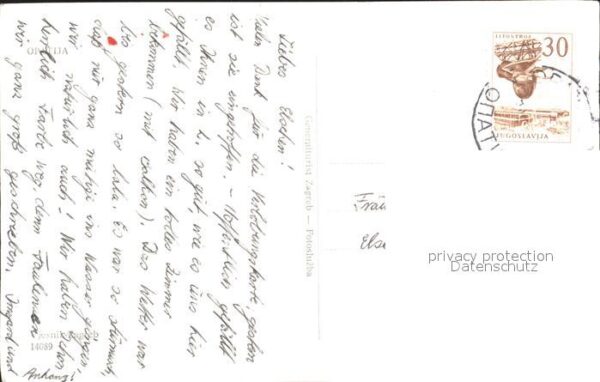 Liebes Elschen!
Vielen Dank für die Verlobungskarte, gestern
ist sie eingetroffen. – Hoffentlich gefällt
es Ihnen in L. so gut, wie es uns hier
gefällt. Wir haben ein tolles Zimmer
bekommen (mit Balkon). Das Wetter war
bis gestern so lala. Es war so stürmisch,
daß nur ganz mutige ins Wasser gingen,
wir natürlich auch! Wir haben schon
herrlich Farbe weg, denn Faulenzen
wir ganz groß geschrieben. Irmgard und
OPATIJA
14089
Generalturist Zagreb — Fotoslužba
JUGOSLAVIJA
30
Fräu
Else
privacy protection
Datenschutz